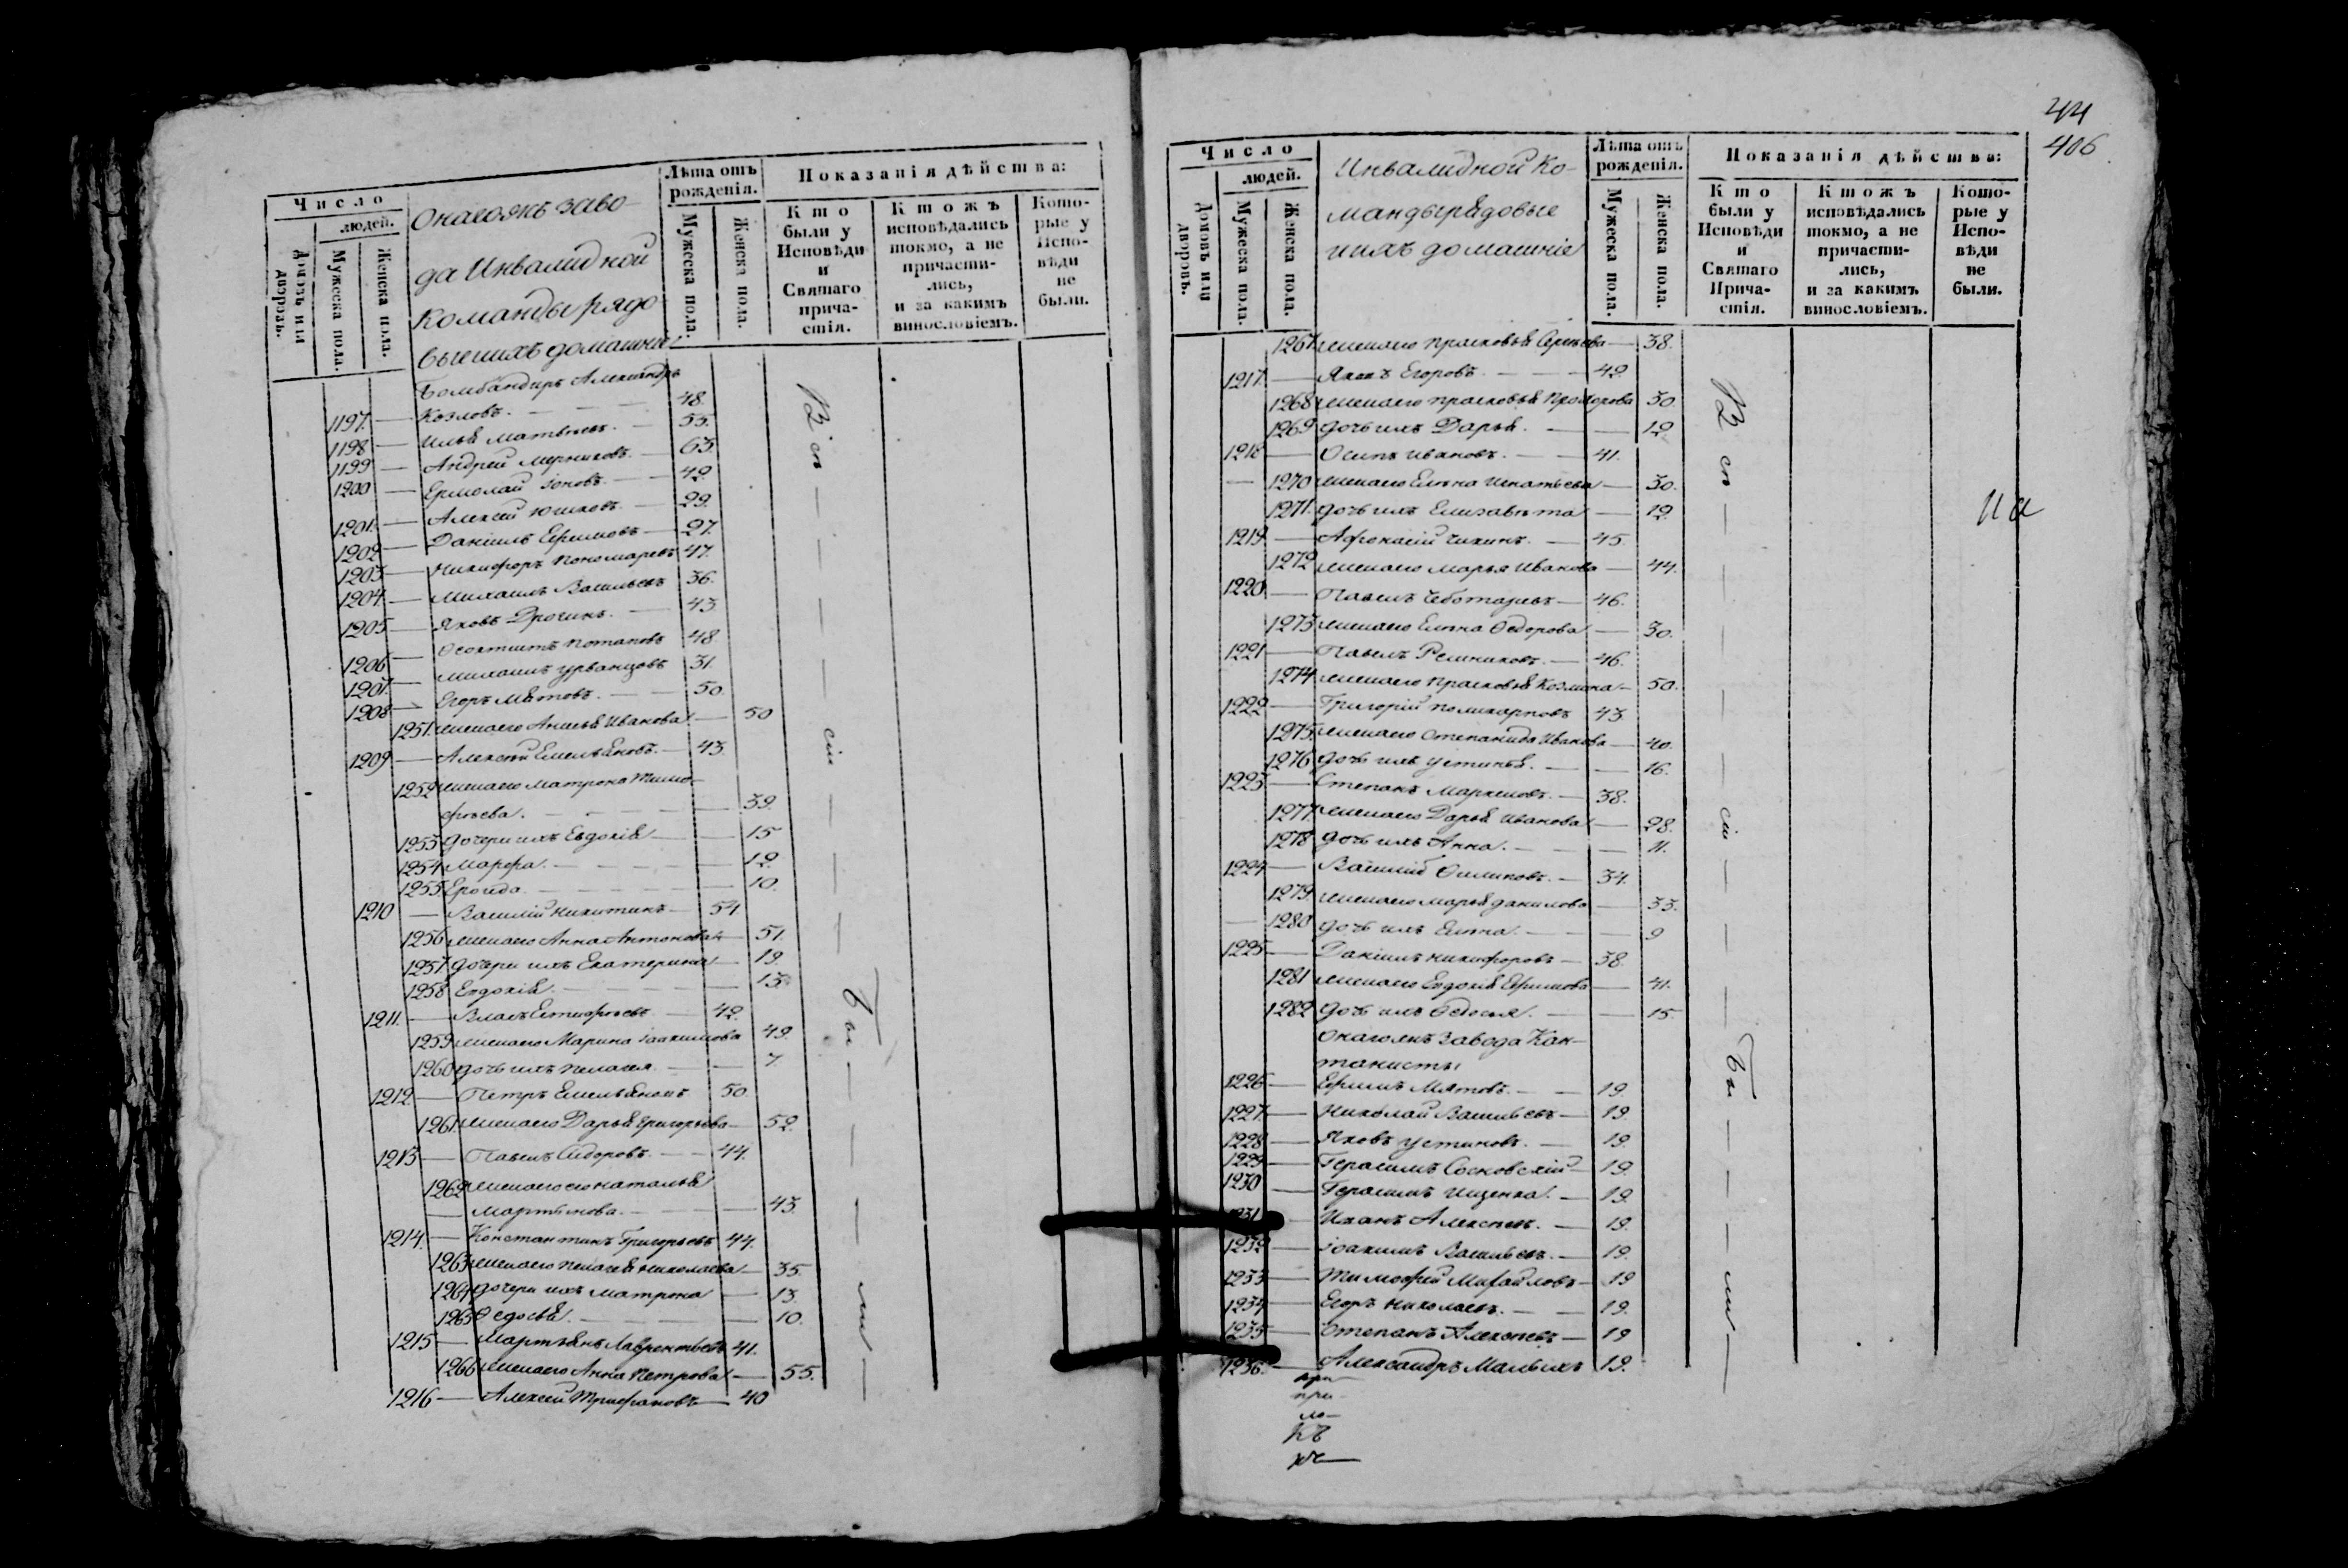 Число
людей.
Домовъ или дворовъ.
Мужеска пола.
Женска пола.
Онагожъ заво-
да Инвалидной
Команды рядо
вые ихъ домашніе
Лѣта отъ рожденія.
Мужеска пола.
Женска пола.
Показанія дѣйства:
Кто были у Исповѣди и Святаго причастія.
Ктожъ исповѣдались токмо, а не причастились, и за какимъ винословіемъ.
Которые у Исповѣди не были.
Бомбандиръ Александръ
1197. — Козловъ. — 48.
1198 — Илья Матвѣевъ. — 55.
1199 — Андрей Мерниковъ. — 63.
1200 — Ермолай Іоновъ. — 42.
1201. — Алексей Юшковъ. — 29.
1202 — Даніилъ Ефимовъ — 27.
1203 — Никифоръ Пономаревъ 47.
1204. — Михаилъ Васильевъ 36.
1205 — Яковъ Дрогинъ. — 43
1206 — Потаповъ 48.
1207. — Михаилъ Урванцовъ 31.
1208 — Егоръ Мятовъ. — 50.
1251. жена его Анисья Иванова — 50
1209 — Алексѣй Емельяновъ. — 43.
1252 жена его Матрона Тимо-
фѣева. — 39.
1253 дочери ихъ Евдокія — 15
1254 Марфа. — 12.
1255 — 10.
1210 — Василій Никитинъ — 54
1256 жена его Анна Антонова — 51.
1257 дочери ихъ Екатерина — 19.
1258 Евдокія. — 13.
1211. — Власъ Естифѣевъ — 42.
1259 жена его Марина Іоакимова 49.
1260 дочь ихъ Пелагея. — 7.
1212. — Петръ Емельяновъ 50.
1261 жена его Дарья Григорьева — 52.
1213 — Павелъ Сидоровъ. — 44.
1262 жена его Наталья
Мартынова. — 43.
1214. — Константинъ Григорьевъ 44.
1263 жена его Пелагея Николаева — 35.
1264 дочери ихъ Матрона — 13.
1265 Федосья. — 10.
1215 — Мартьянъ Лаврентьевъ 41.
1266 жена его Анна Петрова — 55.
1216 — Алексей Трифановъ — 40
Вси — сіи — бы — ли —
44
406
Число
людей.
Домовъ или дворовъ.
Мужеска пола.
Женска пола.
Инвалидной Ко-
манды рядовые
и ихъ домашніе
Лѣта отъ рожденія.
Мужеска пола.
Женска пола.
Показанія дѣйства:
Кто были у Исповѣди и Святаго Причастія.
Ктожъ исповѣдались токмо, а не причастились, и за какимъ винословіемъ.
Которые у Исповѣди не были.
1267 жена его Прасковья Сергѣева — 38.
1217. — Яковъ Егоровъ. — 42.
1268 жена его Прасковья Прохорова 30.
1269 дочь ихъ Дарья. — 12.
1218 — Осипъ Ивановъ. — 41.
1270 жена его Елена Игнатьева — 30.
1271. дочь ихъ Елизавета — 12.
1219. — Афонасій Чикинъ. — 45.
1272 жена его Марья Иванова — 44.
1220. — Павелъ Чеботаревъ — 46.
1273 жена его Елена Федорова — 30.
1221 — Павелъ Решниковъ. — 46.
1274 жена его Прасковья Козмина — 50.
1222 — Григорій Поликарповъ 43.
1275 жена его Степанида Иванова — 40.
1276 дочь ихъ Устинья. — 16.
1223 — Степанъ Маркеловъ. — 38.
1277 жена его Дарья Иванова — 28.
1278 дочь ихъ Анна. — 11.
1224 — Василій Филиповъ. — 34.
1279 жена его Марья Данилова — 33.
1280 дочь ихъ Елена. — 9
1225 — Даніилъ Никифоровъ — 38.
1281 жена его Евдокія Ефимова — 41.
1282 дочь ихъ Федосья. — 15.
Онагожъ завода Кан-
тонисты
1226 — Ефимъ Мятовъ. — 19.
1227. — Николай Васильевъ — 19.
1228 — Яковъ Устиновъ. — 19.
1229 — Герасимъ Сосновскій — 19.
1230 — Герасимъ Ищенка. — 19.
1231 — Иванъ Алексѣевъ. — 19.
1232 — Іоакимъ Васильевъ. — 19.
1233 — Тимофей Михайловъ — 19
1234 — Егоръ Николаевъ. — 19.
1235 — Степанъ Алексѣевъ — 19
1236. — Александръ Малыхъ 19.
Вси — сіи — бы — ли —
при
ло-
къ